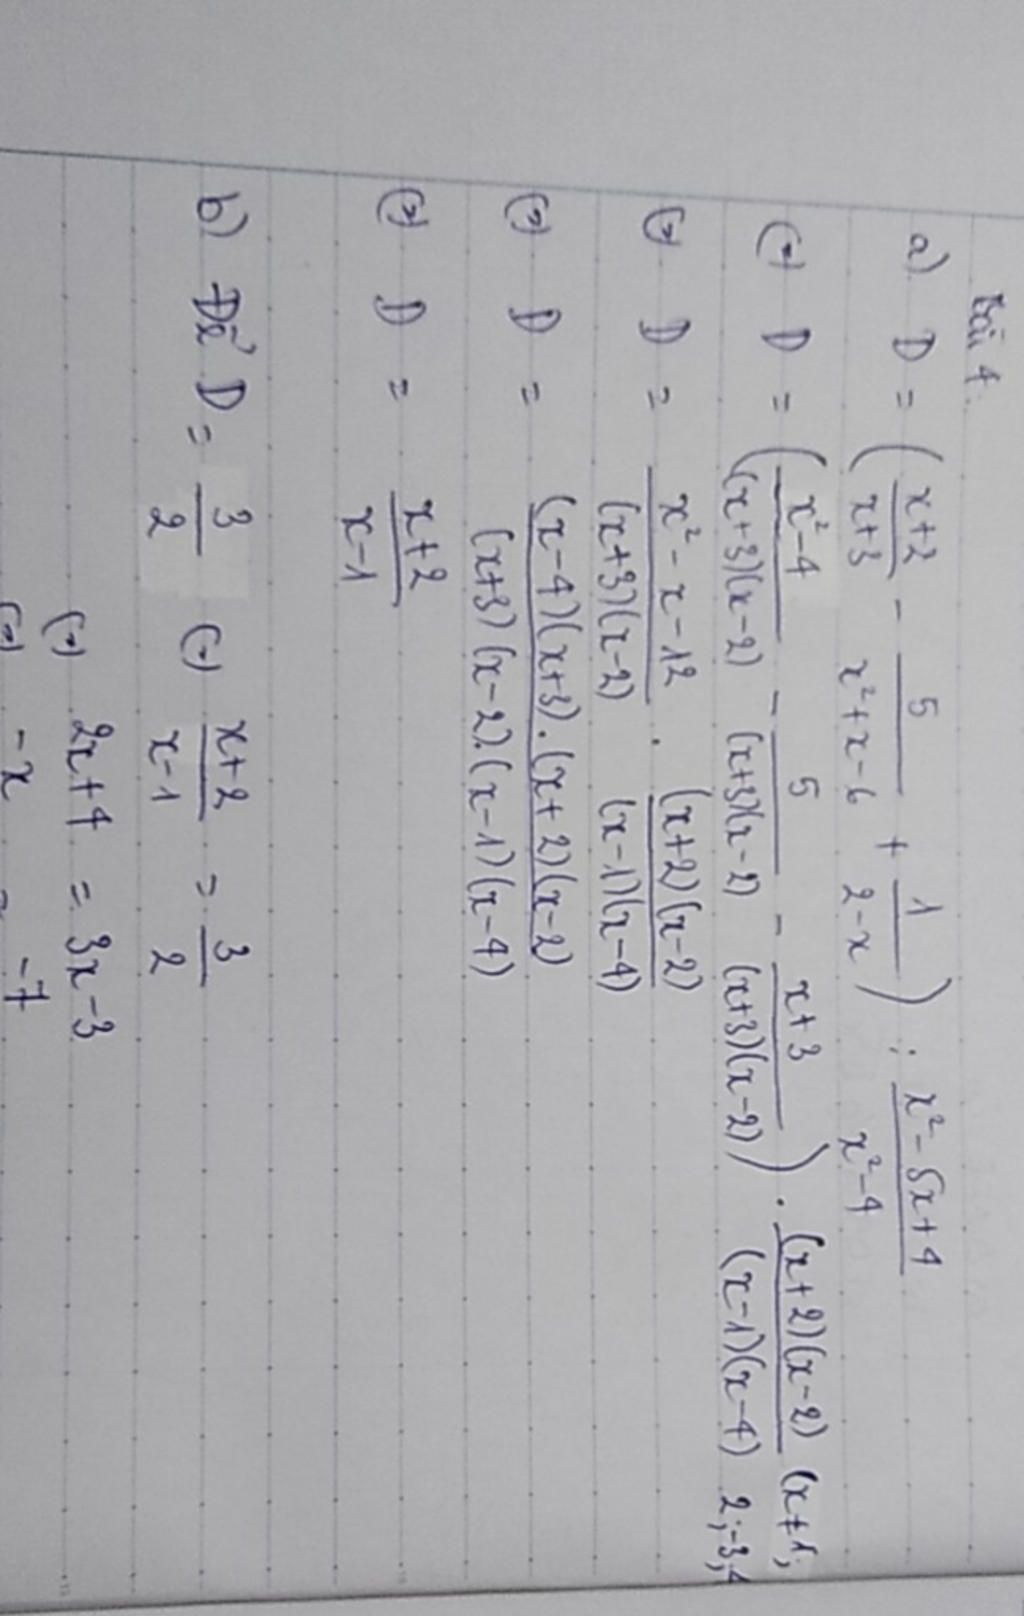 Bài 4.
a) D = (x+2/x+3 - 5/x²+x-6 + 1/2-x) : x²-5x+4/x²-4
(=) D = (x²-4/(x+3)(x-2) - 5/(x+3)(x-2) - x+3/(x+3)(x-2)) . (x+2)(x-2)/(x-1)(x-4) (x≠1; 2;-3;4
(=) D = x²-x-12/(x+3)(x-2) . (x+2)(x-2)/(x-1)(x-4)
(=) D = (x-4)(x+3).(x+2)(x-2)/(x+3)(x-2).(x-1)(x-4)
(=) D = x+2/x-1
b) Để D = 3/2 (=) x+2/x-1 = 3/2
(=) 2x+4 = 3x-3
(=) -x = -7